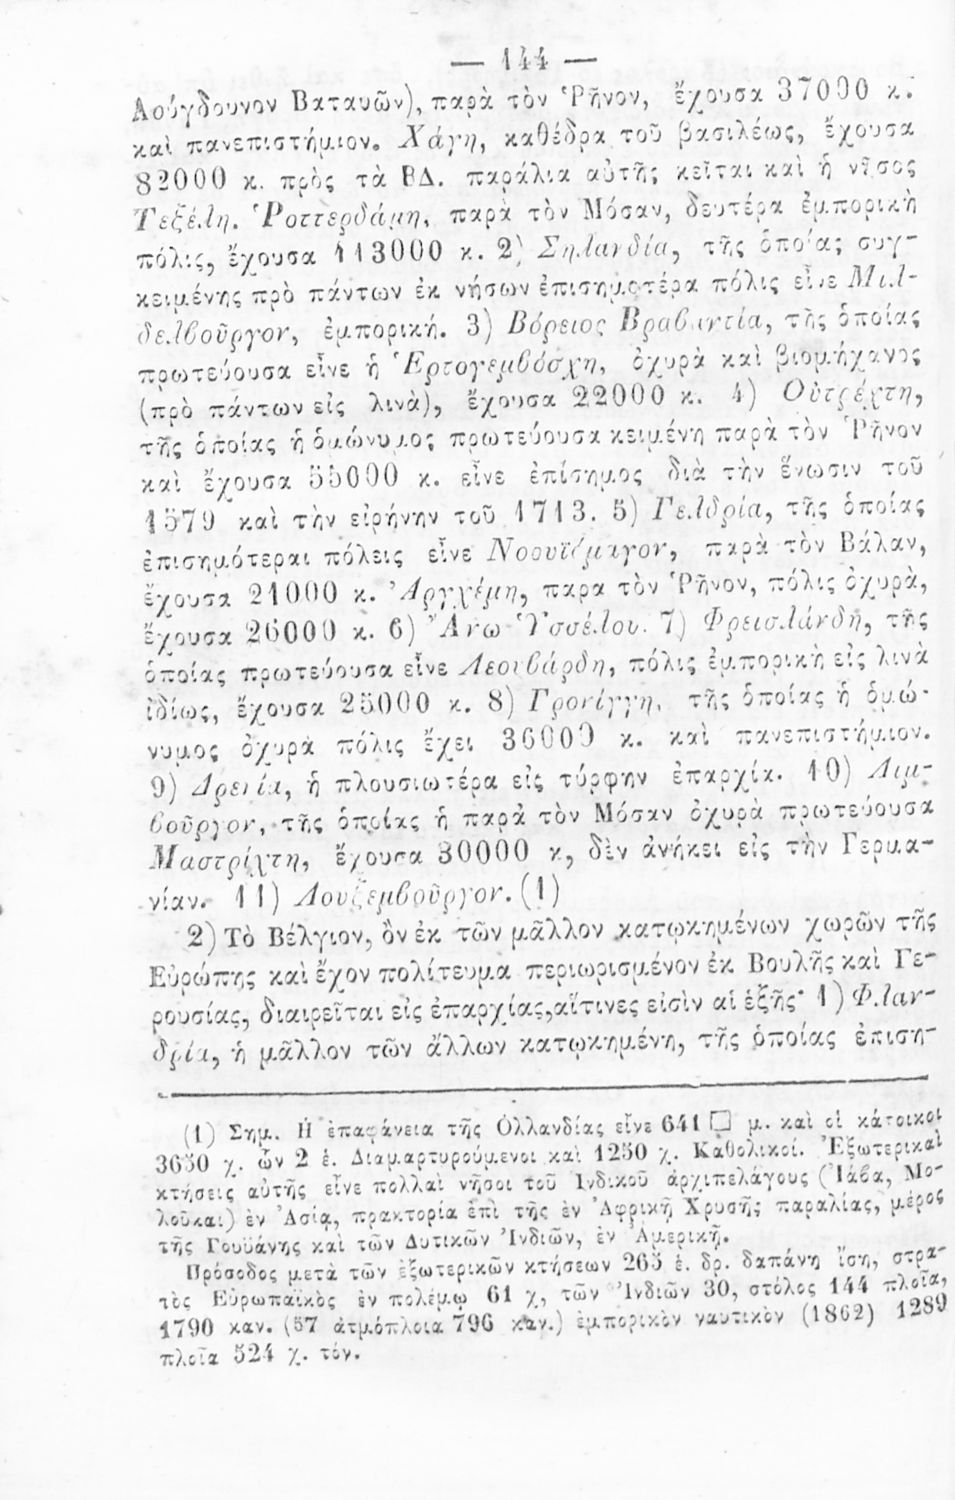 — 144 —
Λούγδουνον Βαταυῶν), παρὰ τὸν Ῥῆνον, ἔχουσα 37000 κ.
καὶ πανεπιστήμιον. Χάγη, καθέδρα τοῦ βασιλέως, ἔχουσα
82000 κ. πρὸς τὰ ΒΔ. παράλια αὐτῆς κεῖται καὶ ἡ νῆσος
Τεξέλη. Ῥοττερδάμη, παρὰ τὸν Μόσαν, δευτέρα ἐμπορικὴ
πόλις, ἔχουσα 113000 κ. 2) Σηλανδία, τῆς ὁποίας συγ-
κειμένης πρὸ πάντων ἐκ νήσων ἐπισημοτέρα πόλις εἶνε Μιλ-
δελβοῦργον, ἐμπορική. 3) Βόρειος Βραβαντία, τῆς ὁποίας
πρωτεύουσα εἶνε ἡ Ἑρτογεμβόσχη, ὀχυρὰ καὶ βιομήχανος
(πρὸ πάντων εἰς λινὰ), ἔχουσα 22000 κ. 4) Οὐτρέχτη,
τῆς ὁποίας ἡ ὁμώνυμος πρωτεύουσα κειμένη παρὰ τὸν Ῥῆνον
καὶ ἔχουσα 55000 κ. εἶνε ἐπίσημος διὰ τὴν ἕνωσιν τοῦ
1579 καὶ τὴν εἰρήνην τοῦ 1713. 5) Γελδρία, τῆς ὁποίας
ἐπισημότεραι πόλεις εἶνε Νοουϊζμαγον, παρὰ τὸν Βάλαν,
ἔχουσα 21000 κ. Ἀργχέμη, παρα τὸν Ῥῆνον, πόλις ὀχυρὰ,
ἔχουσα 26000 κ. 6) Ἄνω Ὑσσέλου. 7) Φρεισλάνδη, τῆς
ὁποίας πρωτεύουσα εἶνε Λεουβάρδη, πόλις ἐμπορικὴ εἰς λινὰ
ἰδίως, ἔχουσα 25000 κ. 8) Γρονίγγη, τῆς ὁποίας ἡ ὁμώ-
νυμος ὀχυρὰ πόλις ἔχει 36000 κ. καὶ πανεπιστήμιον.
9) Δρενία, ἡ πλουσιωτέρα εἰς τύρφην ἐπαρχία. 10) Λιμ-
βοῦργον, τῆς ὁποίας ἡ παρὰ τὸν Μόσαν ὀχυρὰ πρωτεύουσα
Μαστρίχτη, ἔχουσα 30000 κ, δὲν ἀνήκει εἰς τὴν Γερμα-
νίαν. 11) Λουξεμβοῦργον. (1)
2) Τὸ Βέλγιον, ὂν ἐκ τῶν μᾶλλον κατῳκημένων χωρῶν τῆς
Εὐρώπης καὶ ἔχον πολίτευμα περιωρισμένον ἐκ Βουλῆς καὶ Γε-
ρουσίας, διαιρεῖται εἰς ἐπαρχίας, αἵτινες εἰσὶν αἱ ἑξῆς· 1) Φλαν-
δρία, ἡ μᾶλλον τῶν ἄλλων κατῳκημένη, τῆς ὁποίας ἐπιση-
(1) Σημ. Η ἐπιφάνεια τῆς Ολλανδίας εἶνε 641 □ μ. καὶ οἱ κάτοικοι
3650 χ. ὧν 2 ἑ. Διαμαρτυρούμενοι καὶ 1250 χ. Καθολικοί. Ἐξωτερικαὶ
κτήσεις αὐτῆς εἶνε πολλαὶ νῆσοι τοῦ Ἰνδικοῦ ἀρχιπελάγους (Ἰάβα, Μο-
λοῦκαι) ἐν Ἀσίᾳ, πρακτορία ἐπὶ τῆς ἐν Ἀφρικῇ Χρυσῆς παραλίας, μέρος
τῆς Γουϋάνης καὶ τῶν Δυτικῶν Ἰνδιῶν, ἐν Ἀμερικῇ.
Πρόσοδος μετὰ τῶν ἐξωτερικῶν κτήσεων 265 ἑ. δρ. δαπάνη ἴση, στρα-
τὸς Εὐρωπαϊκὸς ἐν πολέμῳ 61 χ, τῶν Ἰνδιῶν 30, στόλος 144 πλοῖα,
1790 καν. (57 ἀτμόπλοια 796 καν.) ἐμπορικὸν ναυτικὸν (1862) 1289
πλοῖα 524 χ. τόν.